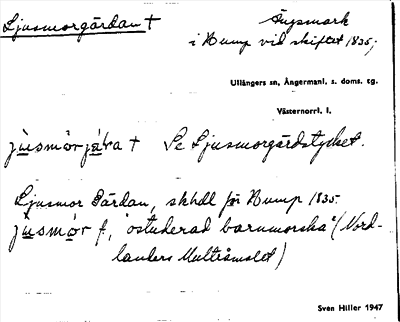 Ljusmorgärdan †
Ängsmark
i Rump vid skiftet 1835;
Ullångers sn, Ångermanl. s. doms. tg.
Västernorrl. l.
jùsmórjá̀ra † Se Ljusmorgärdstycket.
Ljusmor Gärdan, skhdl för Rump 1835.
jùsmór f, "ostuderad barnmorska" (Nord-
landers Multråmålet)
Sven Hiller 1947